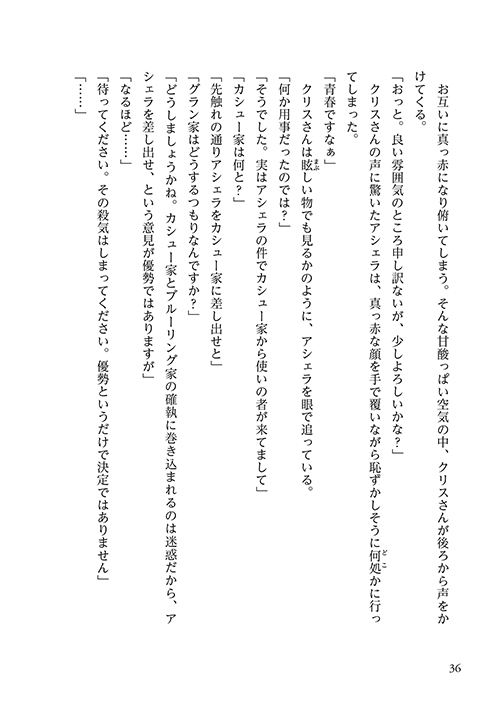 お互いに真っ赤になり俯いてしまう。そんな甘酸っぱい空気の中、クリスさんが後ろから声をか
けてくる。
「おっと。良い雰囲気のところ申し訳ないが、少しよろしいかな？」
　クリスさんの声に驚いたアシェラは、真っ赤な顔を手で覆いながら恥ずかしそうに何処かに行っ
てしまった。
「青春ですなぁ」
　クリスさんは眩しい物でも見るかのように、アシェラを眼で追っている。
「何か用事だったのでは？」
「そうでした。実はアシェラの件でカシュー家から使いの者が来てまして」
「カシュー家は何と？」
「先触れの通りアシェラをカシュー家に差し出せと」
「グラン家はどうするつもりなんですか？」
「どうしましょうかね。カシュー家とブルーリング家の確執に巻き込まれるのは迷惑だから、ア
シェラを差し出せ、という意見が優勢ではありますが」
「なるほど……」
「待ってください。その殺気はしまってください。優勢というだけで決定ではありません」
「……」
36